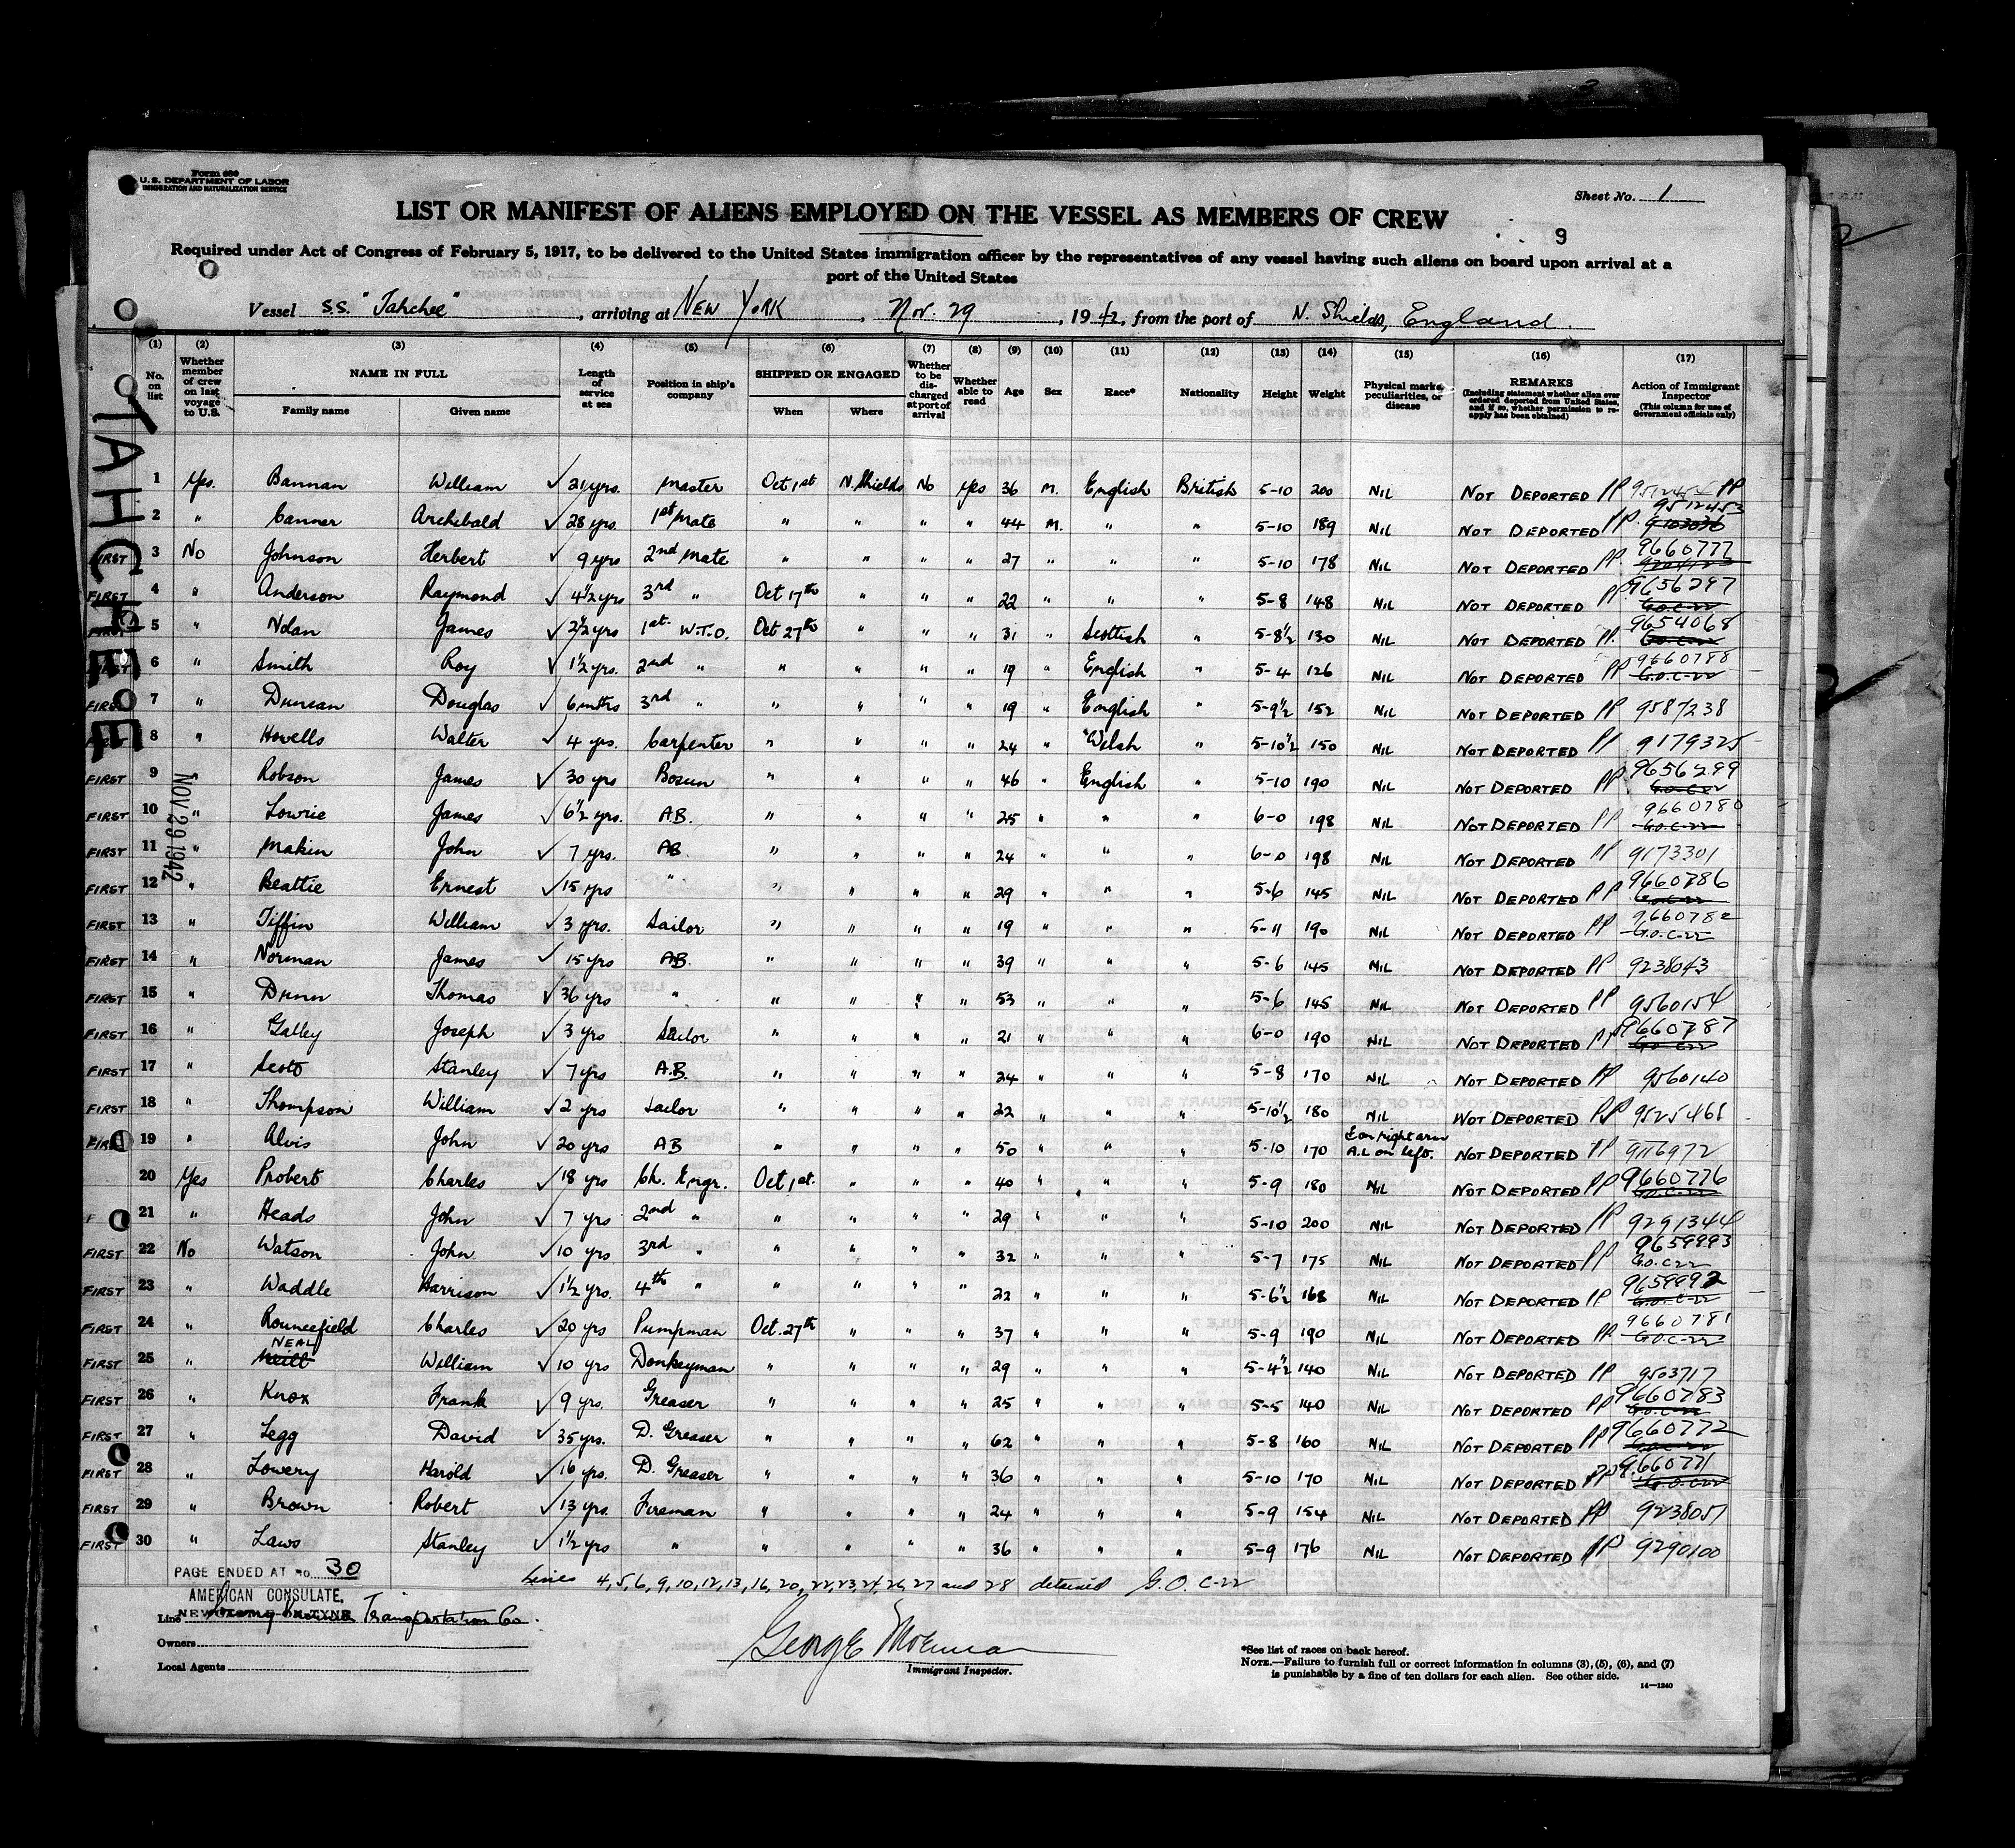 Form 680
U. S. DEPARTMENT OF LABOR
IMMIGRATION AND NATURALIZATION SERVICE
Sheet No. 1
LIST OR MANIFEST OF ALIENS EMPLOYED ON THE VESSEL AS MEMBERS OF CREW
9
Required under Act of Congress of February 5, 1917, to be delivered to the United States immigration officer by the representatives of any vessel having such aliens on board upon arrival at a
port of the United States
Vessel S.S. "Tahchee", arriving at NEW YORK, Nov. 29, 1942, from the port of N. Shields, England.
(1) (2) (3) (4) (5) (6) (7) (8) (9) (10) (11) (12) (13) (14) (15) (16) (17)
No. on list
Whether member of crew on last voyage to U.S.
NAME IN FULL
Family name Given name
Length of service at sea
Position in ship's company
SHIPPED OR ENGAGED
When Where
Whether to be discharged at port of arrival
Whether able to read
Age Sex Race* Nationality Height Weight
Physical marks, peculiarities, or disease
REMARKS
(Including statement whether alien ever ordered deported from United States, and if so, whether permission to re-apply has been obtained)
Action of Immigrant Inspector
(This column for use of Government officials only)
TAHCHEE
NOV 29 1942
1 Yes. Bannan William ✓ 21 yrs. Master Oct 1st N. Shields No Yes 36 M. English British 5-10 200 NIL NOT DEPORTED PP 9512454 PP
2 " Canner Archibald ✓ 28 yrs. 1st Mate " " " " 44 M. " " 5-10 189 NIL NOT DEPORTED PP. 9512453
FIRST 3 No Johnson Herbert ✓ 9 yrs 2nd Mate " " " " 27 " " " 5-10 178 NIL NOT DEPORTED PP. 9660777
FIRST 4 " Anderson Raymond ✓ 4½ yrs 3rd " Oct 17th " " " 22 " " " 5-8 148 NIL NOT DEPORTED PP. 9656297 G.O.C-22
FIRST 5 " Nolan James ✓ 2½ yrs 1st. W.T.O. Oct 27th " " " 31 " Scottish " 5-8½ 130 NIL NOT DEPORTED PP. 9654068 G.O.C-22
FIRST 6 " Smith Roy ✓ 1½ yrs. 2nd " " " " " 19 " English " 5-4 126 NIL NOT DEPORTED PP 9660788 G.O.C-22
FIRST 7 " Duncan Douglas ✓ 6 mths 3rd " " " " " 19 " English " 5-9½ 152 NIL NOT DEPORTED PP 9587238
FIRST 8 " Howells Walter ✓ 4 yrs. Carpenter " " " " 24 " Welsh " 5-10½ 150 NIL NOT DEPORTED PP 9179325
FIRST 9 " Robson James ✓ 30 yrs Bosun " " " " 46 " English " 5-10 190 NIL NOT DEPORTED PP 9656299 G.O.C-22
FIRST 10 " Lowrie James ✓ 6½ yrs. A.B. " " " " 25 " " " 6-0 198 NIL NOT DEPORTED PP 9660780 G.O.C-22
FIRST 11 " Makin John ✓ 7 yrs. AB " " " " 24 " " " 6-0 198 NIL NOT DEPORTED PP 9173301
FIRST 12 " Beattie Ernest ✓ 15 yrs " " " " " 29 " " " 5-6 145 NIL NOT DEPORTED PP 9660786 G.O.C-22
FIRST 13 " Tiffin William ✓ 3 yrs. Sailor " " " " 19 " " " 5-11 190 NIL NOT DEPORTED PP 9660782 G.O.C-22
FIRST 14 " Norman James ✓ 15 yrs AB. " " " " 39 " " " 5-6 145 NIL NOT DEPORTED PP 9238043
FIRST 15 " Dunn Thomas ✓ 36 yrs " " " " " 53 " " " 5-6 145 NIL NOT DEPORTED PP 9560154
FIRST 16 " Galley Joseph ✓ 3 yrs Sailor " " " " 21 " " " 6-0 190 NIL NOT DEPORTED PP 9660787 G.O.C-22
FIRST 17 " Scott Stanley ✓ 7 yrs A.B. " " " " 24 " " " 5-8 170 NIL NOT DEPORTED PP 9560140
FIRST 18 " Thompson William ✓ 2 yrs Sailor " " " " 22 " " " 5-10½ 180 NIL NOT DEPORTED PP 9525461
FIRST 19 " Alvis John ✓ 20 yrs AB " " " " 50 " " " 5-10 170 E on right arm A.L on left. NOT DEPORTED PP 9116972
20 Yes Probert Charles ✓ 18 yrs Ch. Engr. Oct 1st. " " " 40 " " " 5-9 180 NIL NOT DEPORTED PP 9660776 G.O.C-22
21 " Heads John ✓ 7 yrs 2nd " " " " " 29 " " " 5-10 200 NIL NOT DEPORTED PP 9291344
FIRST 22 No Watson John ✓ 10 yrs 3rd " " " " " 32 " " " 5-7 175 NIL NOT DEPORTED PP 9659993 G.O.C-22
FIRST 23 " Waddle Harrison ✓ 1½ yrs. 4th " " " " " 22 " " " 5-6½ 168 NIL NOT DEPORTED PP 9659992 G.O.C-22
FIRST 24 " Rouncefield Charles ✓ 20 yrs Pumpman Oct. 27th " " " 37 " " " 5-9 190 NIL NOT DEPORTED PP 9660781 G.O.C-22
FIRST 25 " Neill NEAL William ✓ 10 yrs Donkeyman " " " " 29 " " " 5-4½ 140 NIL NOT DEPORTED PP 9503717
FIRST 26 " Knox Frank ✓ 9 yrs. Greaser " " " " 25 " " " 5-5 140 NIL NOT DEPORTED PP 9660783 G.O.C-22
FIRST 27 " Legg David ✓ 35 yrs. D. Greaser " " " " 62 " " " 5-8 160 NIL NOT DEPORTED PP 9660772 G.O.C-22
FIRST 28 " Lowery Harold ✓ 16 yrs. D. Greaser " " " " 36 " " " 5-10 170 NIL NOT DEPORTED PP 9660771 G.O.C-22
FIRST 29 " Brown Robert ✓ 13 yrs. Fireman " " " " 24 " " " 5-9 154 NIL NOT DEPORTED PP 9238051
FIRST 30 " Laws Stanley ✓ 1½ yrs " " " " " 36 " " " 5-9 176 NIL NOT DEPORTED PP 9290100
PAGE ENDED AT No. 30
Lines 4,5,6,9,10,12,13,16,20,22,23,24,26,27 and 28 detained G.O. C-22
AMERICAN CONSULATE,
Line Transportation Co.
Owners
Local Agents
Immigrant Inspector.
*See list of races on back hereof.
NOTE.—Failure to furnish full or correct information in columns (3), (5), (6), and (7)
is punishable by a fine of ten dollars for each alien. See other side.
14—1240